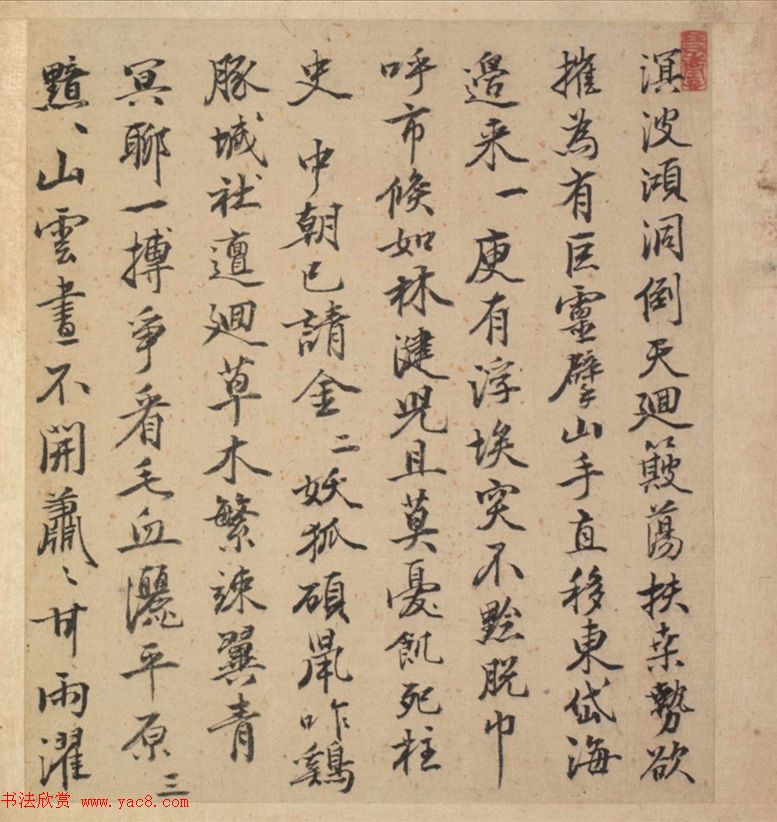 溟波澒洞倒天廻簸蕩扶桒勢欲
摧為有巨靈擘山手直移東岱海
邉来一庾有浮埃突不黔脱巾
呼市候如林健児且莫憂飢死柱
史中朝已請金二妖狐碩鼠咋鷄
豚城社邅廻草木繁竦翼青
冥聊一搏爭看毛血灑平原三
黯〻山雲晝不開蕭〻甘雨濯
书法欣赏 www.yac8.com